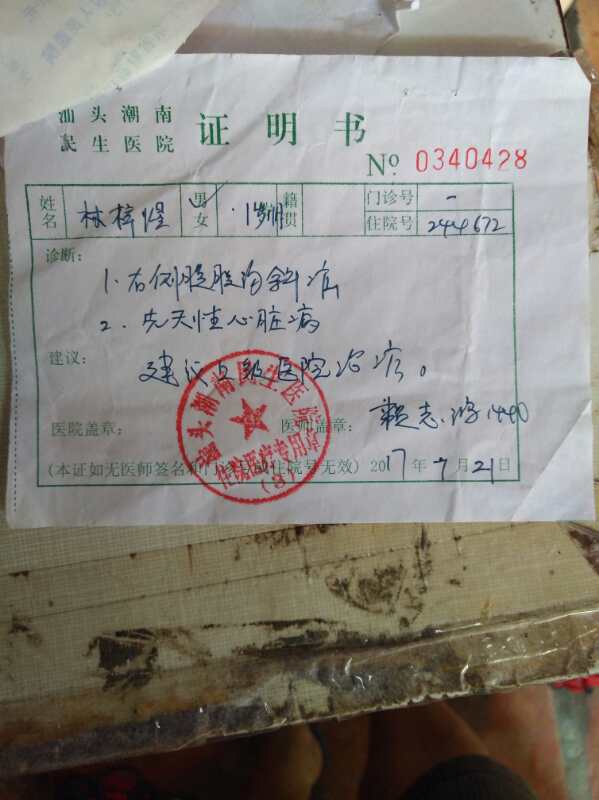 汕头潮南
民生医院 证明书
Nº 0340428
姓名 林梓煋 男女 1岁 籍贯 门诊号 -
住院号 244672
诊断：
1. 右侧腹股沟斜疝
2. 先天性心脏病
建议：
建议上级医院治疗。
医院盖章： 医师盖章： 赖志
(本证如无医师签名和门诊号或住院号无效) 2017年7月21日
汕头潮南民生医院
住院医疗专用章